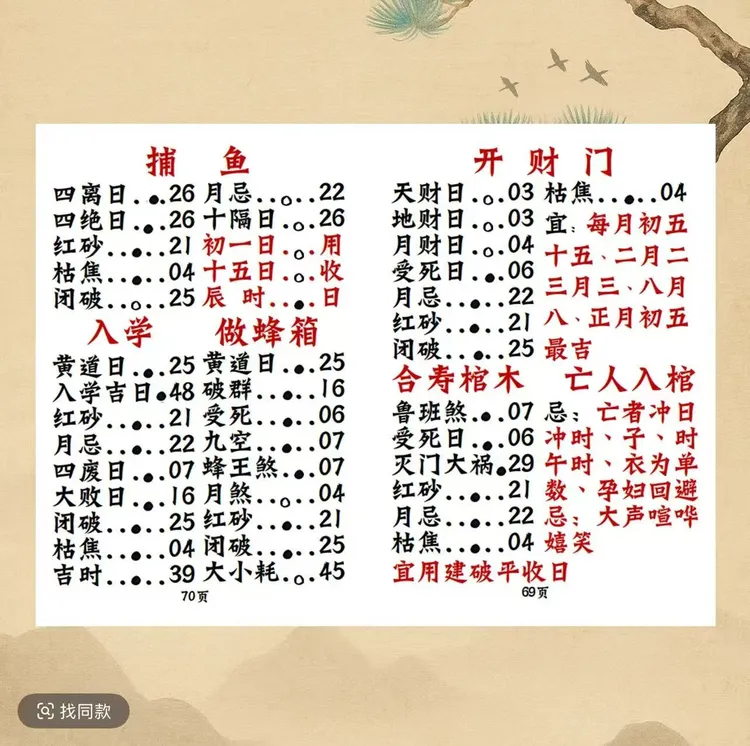 捕 鱼
四离日..●.26
四绝日..●.26
红砂...●..21
枯焦...●..04
闭破...○..25
月忌...○..22
十隔日..○.26
初一日.○.用
十五日.○.收
辰 时...●.日
入学
黄道日..●.25
入学吉日.●48
红砂...●..21
月忌...●..22
四废日..●.07
大败日..●.16
闭破...●..25
枯焦...●..04
吉时...●..39
做蜂箱
黄道日..●.25
破群...●..16
受死...●..06
九空...●..07
蜂王煞..●.07
月煞...○..04
红砂...●..21
闭破...●..25
大小耗..○.45
70页
开 财 门
天财日..○.03
地财日..○.03
月财日..○.04
受死日..●.06
月忌...●..22
红砂...●..21
闭破...●..25
枯焦...●..04
宜：每月初五
十五、二月二
三月三、八月
八、正月初五
最吉
合寿棺木
鲁班煞..●.07
受死日..●.06
灭门大祸.●29
红砂...●..21
月忌...●..22
枯焦...●..04
宜用建破平收日
亡人入棺
忌；亡者冲日
冲时、子、时
午时、衣为单
数、孕妇回避
忌；大声喧哗
嬉笑
69页
找同款